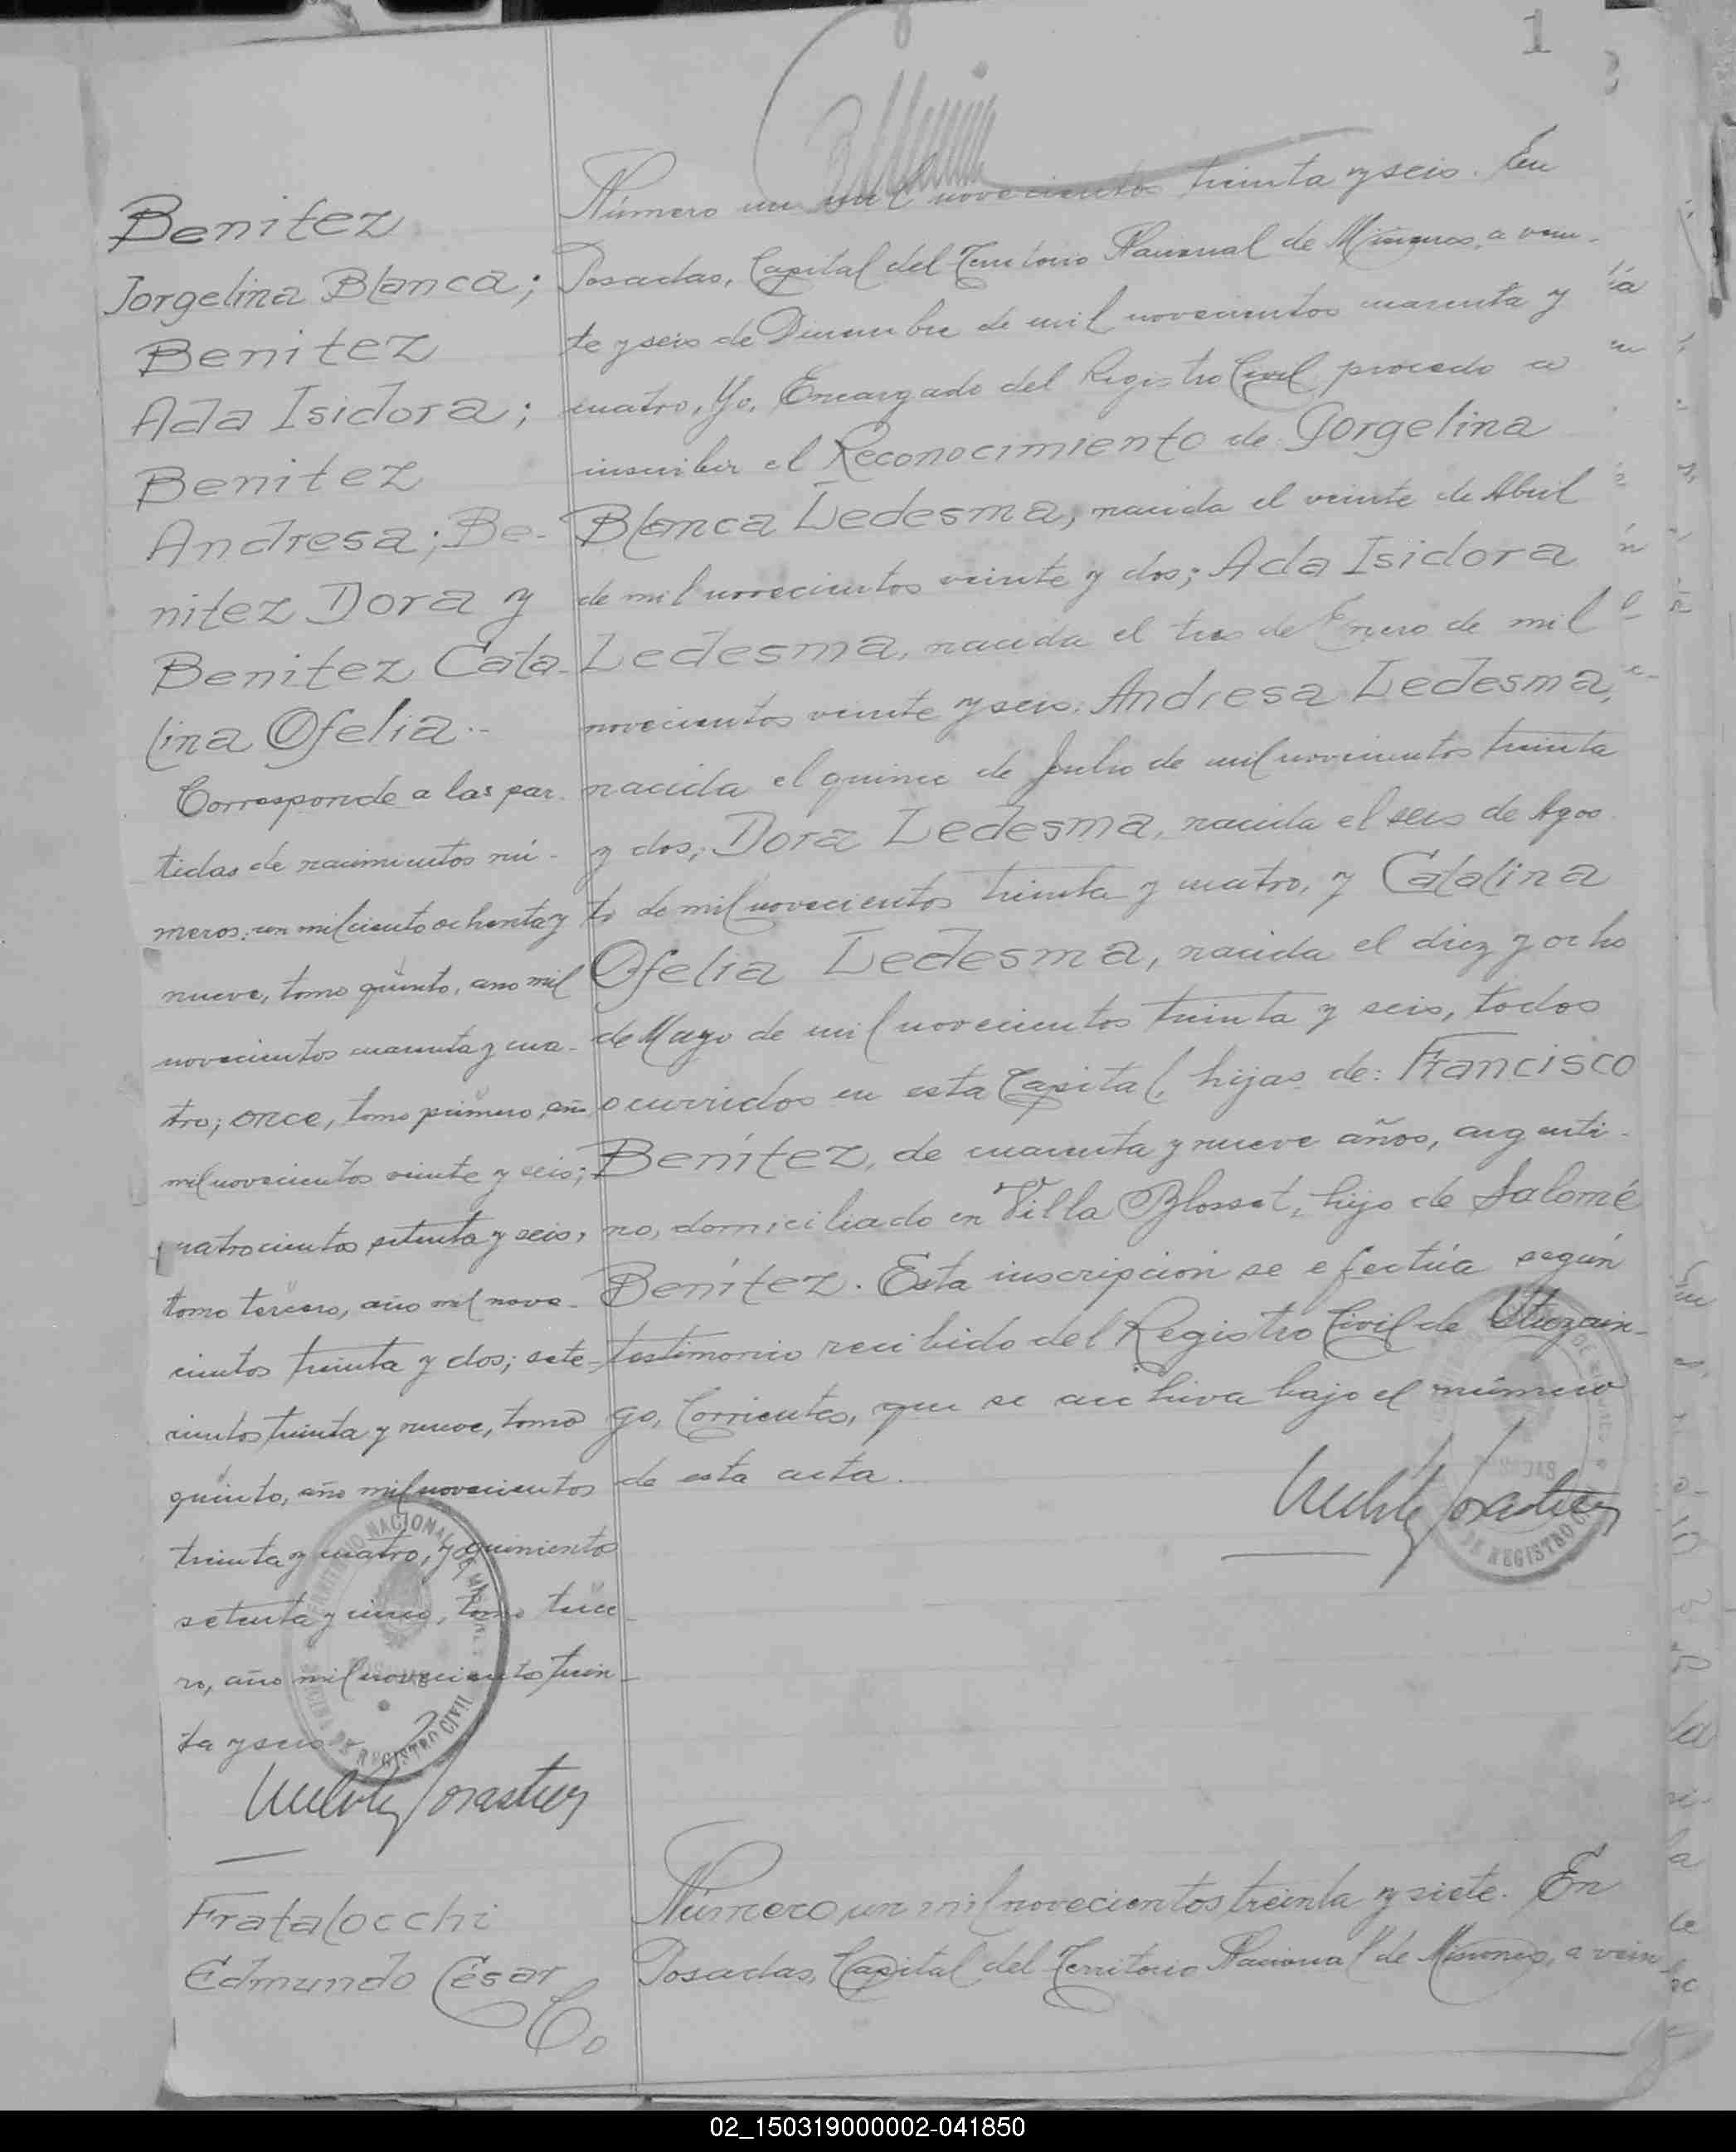 1
Benitez
Jorgelina Blanca;
Benitez
Ada Isidora;
Benitez
Andresa; Be-
nitez Dora y
Benitez Cata-
lina Ofelia.-
Corresponde a las par-
tidas de nacimientos nú-
meros: un mil ciento ochenta y
nueve, tomo quinto, año mil
novecientos cuarenta y cua-
tro; once, tomo primero, año
mil novecientos veinte y seis;
cuatrocientos setenta y seis,
tomo tercero, año mil nove-
cientos treinta y dos; sete-
cientos treinta y nueve, tomo
quinto, año mil novecientos
treinta y cuatro, y quinientos
setenta y cinco, tomo terce-
ro, año mil novecientos trein-
ta y seis
TERRITORIO NACIONAL DE MISIONES
OFICINA DE REGISTRO CIVIL
Número un mil novecientos treinta y seis. En
Posadas, Capital del Territorio Nacional de Misiones, a vein-
te y seis de Diciembre de mil novecientos cuarenta y
cuatro, Yo, Encargado del Registro Civil procedo a
inscribir el Reconocimiento de Jorgelina
Blanca Ledesma, nacida el veinte de Abril
de mil novecientos veinte y dos; Ada Isidora
Ledesma, nacida el tres de Enero de mil
novecientos veinte y seis; Andresa Ledesma,
nacida el quince de Julio de mil novecientos treinta
y dos; Dora Ledesma, nacida el seis de Agos
to de mil novecientos treinta y cuatro, y Catalina
Ofelia Ledesma, nacida el diez y ocho
de Mayo de mil novecientos treinta y seis, todos
ocurridos en esta Capital, hijas de: Francisco
Benítez, de cuarenta y nueve años, argenti-
no, domiciliado en Villa Blosset, hijo de Salomé
Benítez. Esta inscripción se efectúa según
testimonio recibido del Registro Civil de Ituzain-
go, Corrientes, que se archiva bajo el número
de esta acta.
DE REGISTRO C
Fratalocchi
Edmundo César
Número un mil novecientos treinta y siete. En
Posadas, Capital del Territorio Nacional de Misiones, a vein
02_150319000002-041850